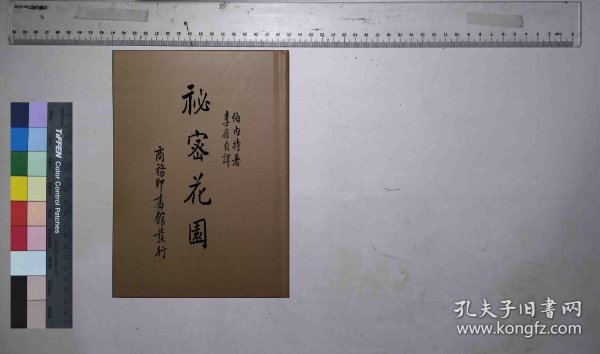 伯内特著
李葆貞譯
祕密花園
商務印書館發行
TIFFEN Color Control Patches
孔夫子旧书网
www.kongfz.com